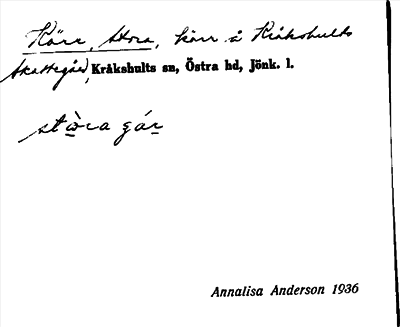 Kärr, Stora, kärr å Kråkshults
Skattegård, Kråkshults sn, Östra hd, Jönk. l.
stòra
Annalisa Anderson 1936